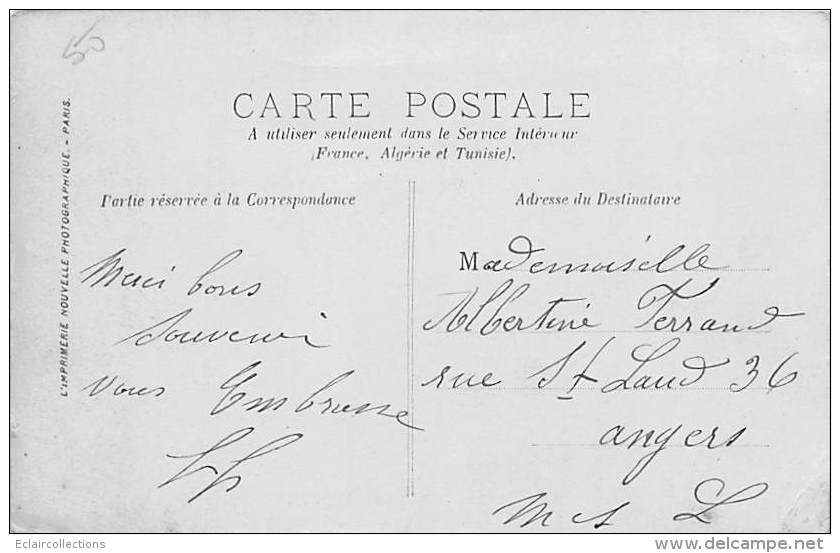 50
CARTE POSTALE
A utiliser seulement dans le Service Intérieur
(France, Algérie et Tunisie).
L'IMPRIMERIE NOUVELLE PHOTOGRAPHIQUE. - PARIS.
Partie réservée à la Correspondance
Merci bons
Souvenir
Vous Embrasse
Adresse du Destinataire
Mademoiselle
Albertine Ferrand
rue St Laud 36
angers
M et L
Eclaircollections
www.delcampe.net